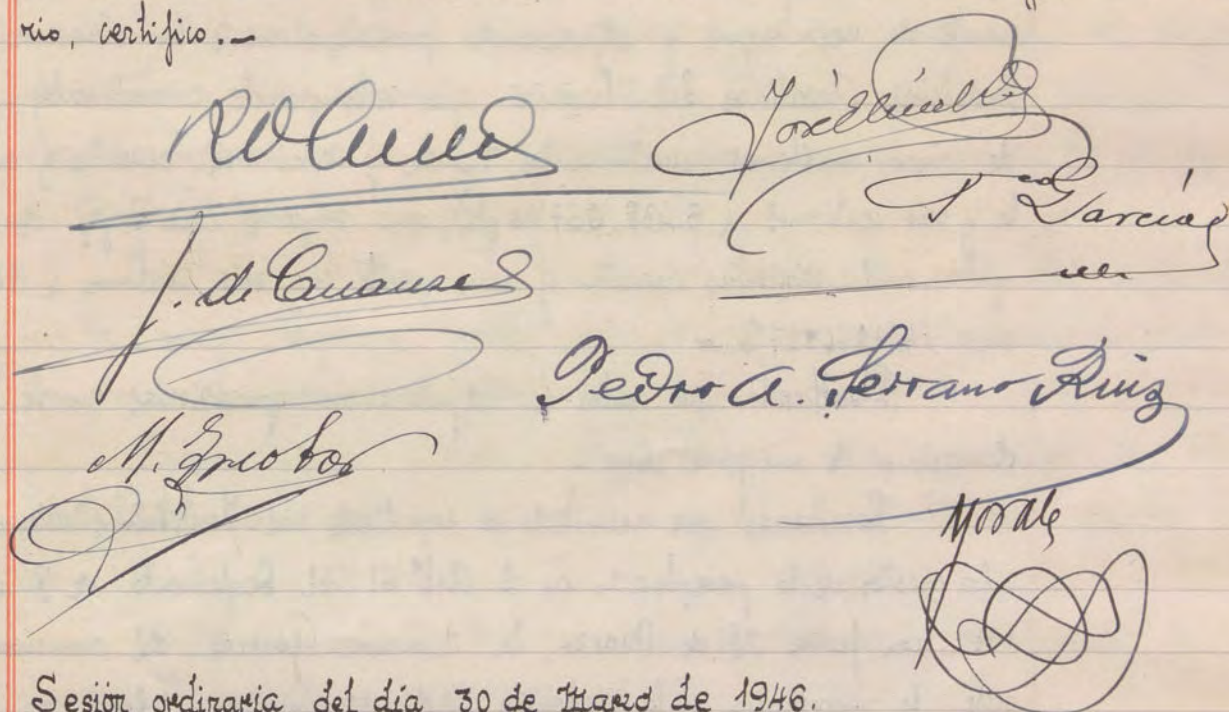 rio, certifico.—
José
Fco García
J. de
M. Escobar
Pedro A. Serrano Ruiz
Morale
Sesión ordinaria del día 30 de Marzo de 1946.